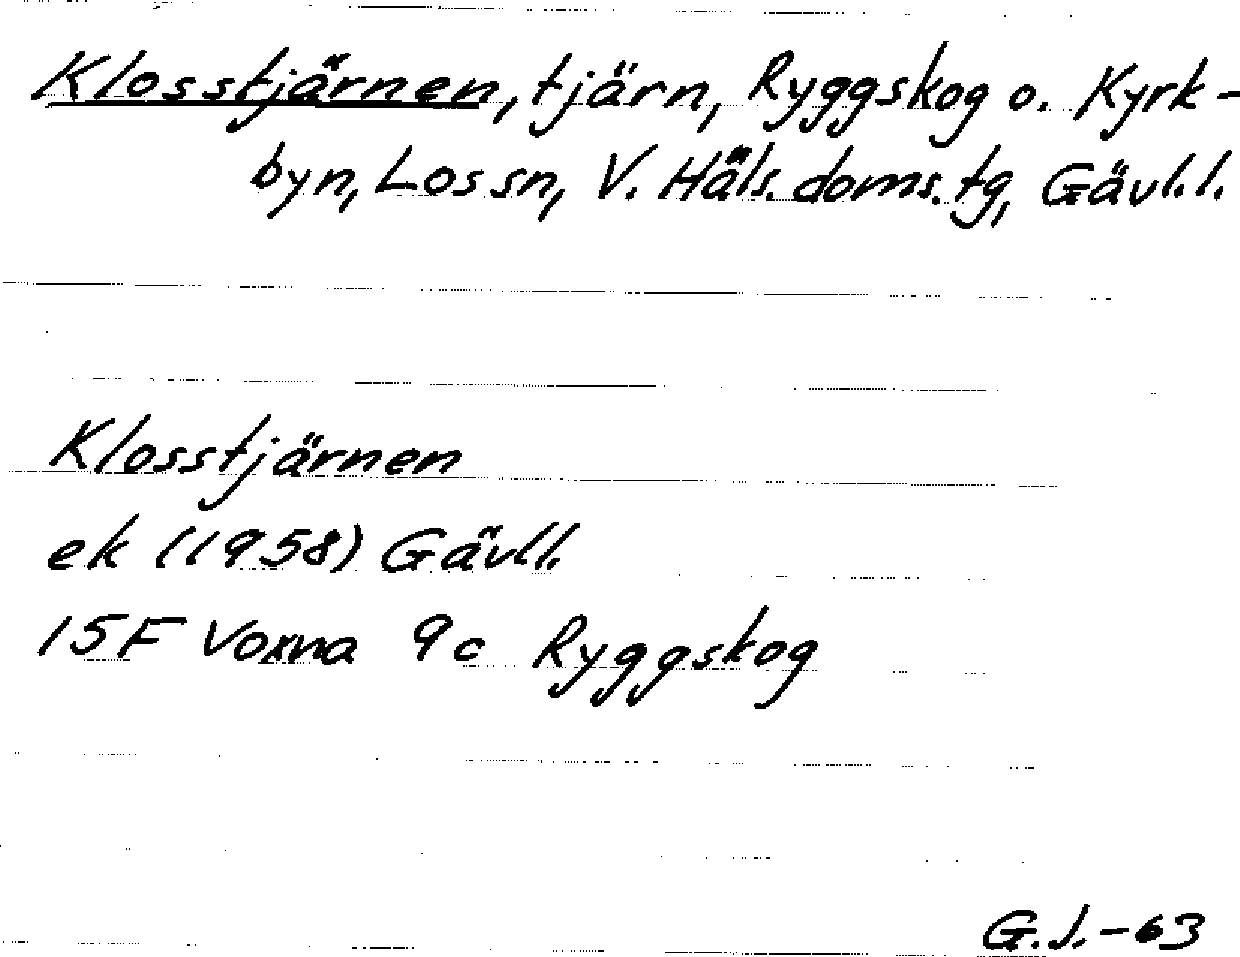 Klosstjärnen, tjärn, Ryggskog o. Kyrk-
byn, Los sn, V. Häls. doms. tg, Gävl. l.
Klosstjärnen
ek (1958) Gävl.l.
15F Voxna 9c Ryggskog
G.J.-63